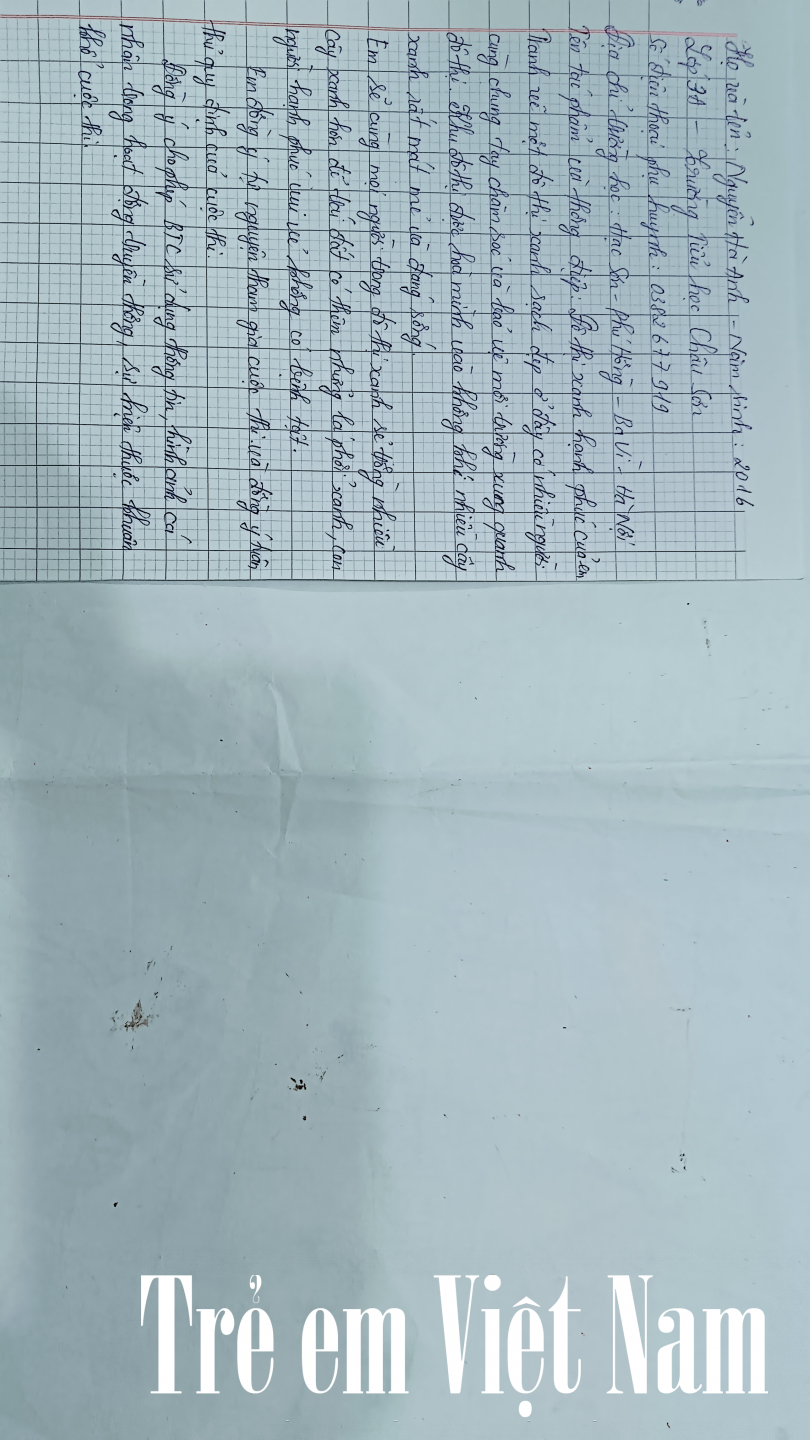 Họ và tên: Nguyễn Hà Anh - Năm sinh: 2016
Lớp 3A - Trường Tiểu học Châu Sơn
Số điện thoại phụ huynh: 0382677919
Địa chỉ trường học: Hạc Sơn - Phú Hồng - Ba Vì - Hà Nội
Tên tác phẩm và thông điệp: Đô thị xanh hạnh phúc của em
Tranh vẽ một đô thị xanh sạch đẹp ở đây có nhiều người
cùng chung tay chăm sóc và bảo vệ môi trường xung quanh
đô thị. Khu đô thị được hoà mình vào không khí nhiều cây
xanh rất mát mẻ và đáng sống.
Em sẽ cùng mọi người trong đô thị xanh sẽ trồng nhiều
cây xanh hơn để trái đất có thêm những lá phổi xanh, con
người hạnh phúc vui vẻ không có bệnh tật.
Em đồng ý tự nguyện tham gia cuộc thi và đồng ý tuân
thủ quy định của cuộc thi.
Đồng ý cho phép BTC sử dụng thông tin, hình ảnh cá
nhân trong hoạt động truyền thông, sự kiện thuộc khuôn
khổ cuộc thi.
Trẻ em Việt Nam